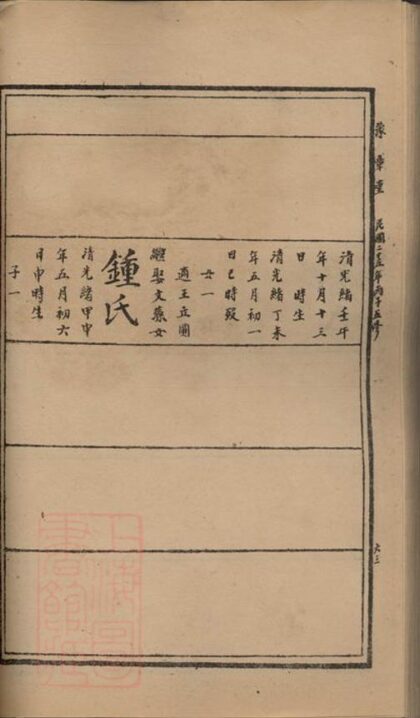 豫章堂
民國二十五年丙子五修
六三
清光緒壬午
年十月十三
日 時生
清光緒丁未
年五月初一
日巳時歿
女一
適王立
繼娶文藻女
鍾氏
清光緒甲申
年五月初六
日申時生
子一
上海圖
書館藏